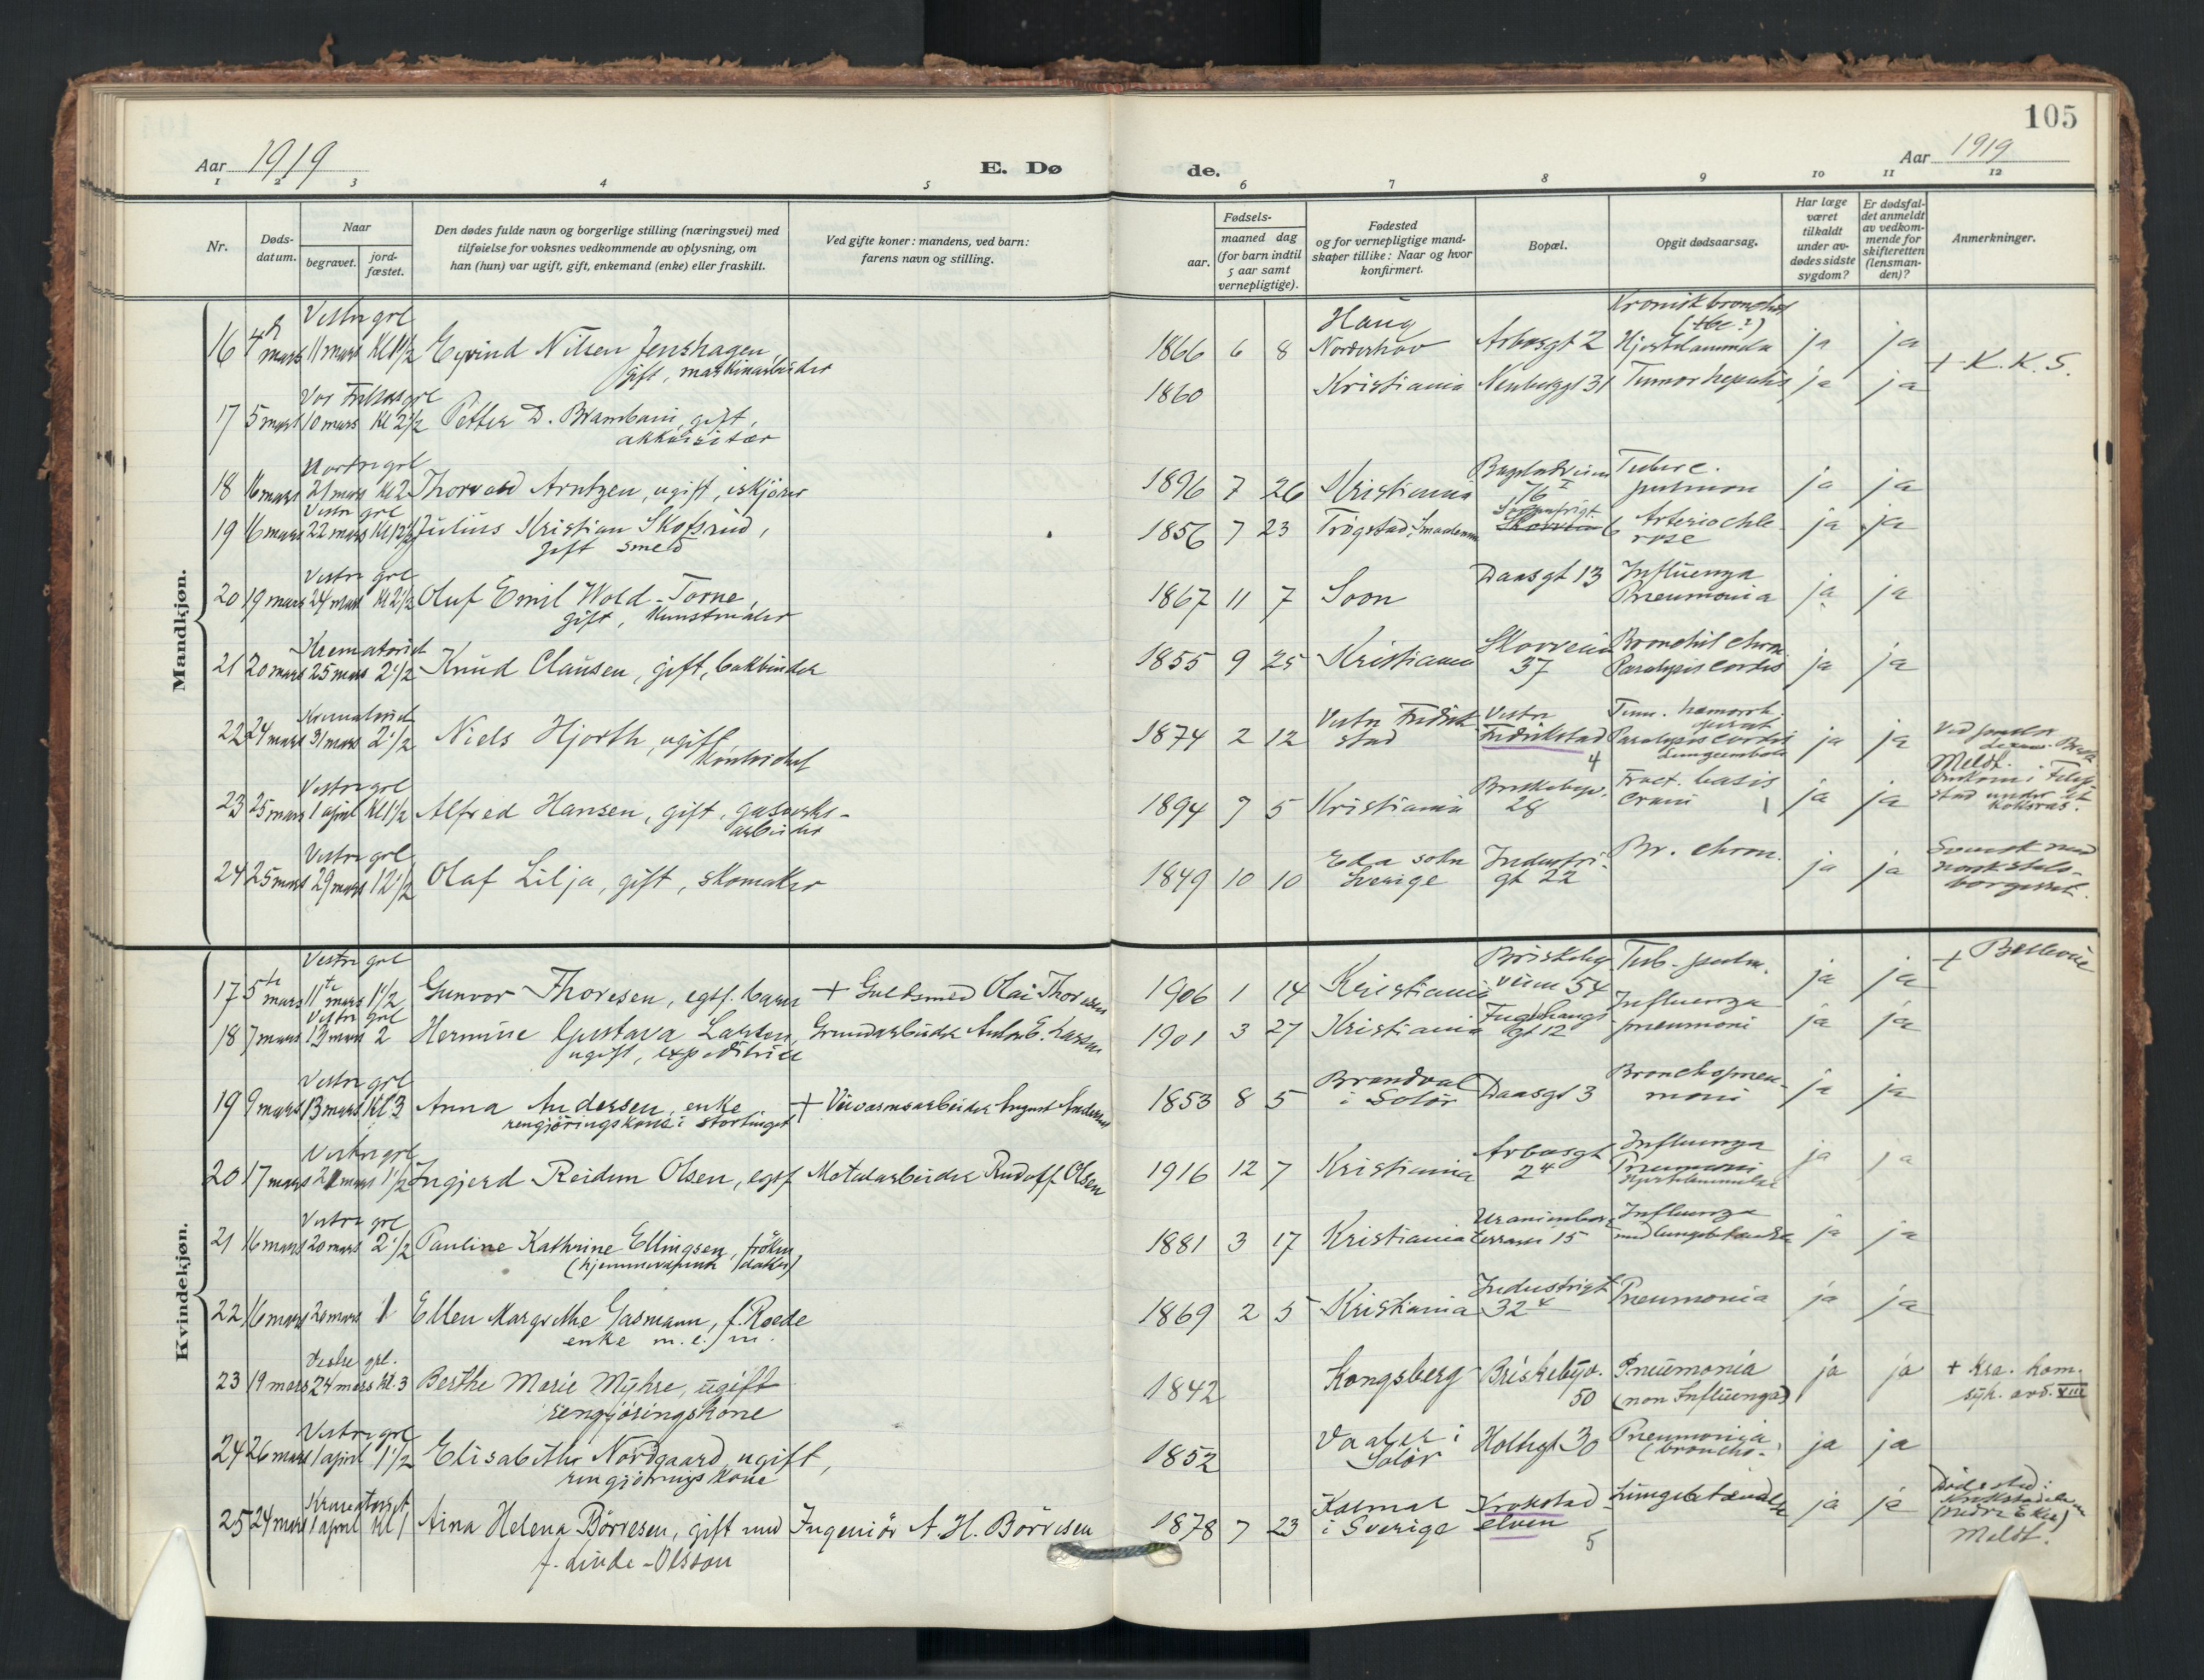 105
Aar 1919 E. Dø de. Aar 1919
1 2 3 4 5 6 7 8 9 10 11 12
Nr.
Døds-
datum.
Naar
begravet.
jord-
fæstet.
Den dødes fulde navn og borgerlige stilling (næringsvei) med
tilføielse for voksnes vedkommende av oplysning, om
han (hun) var ugift, gift, enkemand (enke) eller fraskilt.
Ved gifte koner: mandens, ved barn:
farens navn og stilling.
Fødsels-
aar.
maaned dag
(for barn indtil
5 aar samt
vernepligtige).
Fødested
og for vernepligtige mand-
skaper tillike: Naar og hvor
konfirmert.
Bopæl.
Opgit dødsaarsag.
Har læge
været
tilkaldt
under av-
dødes sidste
sygdom?
Er dødsfal-
det anmeldt
av vedkom-
mende for
skifteretten
(lensman-
den)?
Anmerkninger.
Mandkjøn.
Vestre grl Haug Kronisk bronchit
(tbc?)
16 4 mars 11 mars Eyvind Nilsen Jenshagen 1866 6 8 Norderhov Arbosgt 2 ja ja
gift, maskinarbeider + K.K.S.
Vor Frelsers grl 1860 Kristiania Tumor hepatis ja ja
17 5 mars 10 mars kl 2 1/2 Petter D. Brambani, gift,
akkvisitør
Nordre grl
18 16 mars 21 mars kl 2 Thorvald Arntzen, ugift, iskjører 1896 7 26 Kristiania 76 I Tuberc. pulmon ja ja
Vestre grl
19 16 mars 22 mars kl 12 1/2 Julius Kristian Skofsrud, 1856 7 23 Trøgstad, Smaalenene 6 Arteriochle-
gift smed rose ja ja
Vestre grl Daasgt 13 Influenza
20 19 mars 24 mars kl 2 1/2 Oluf Emil Wold-Torne, 1867 11 7 Soon Pneumonia ja ja
gift, kunstmaler
Krematoriet Skovveien Bronchit chron
21 20 mars 25 mars 2 1/2 Knud Clausen, gift, bokbinder 1855 9 25 Kristiania 37 Paralysis cordis ja ja
Krematoriet Vestre Fredrik- Vestre
22 24 mars 31 mars 2 1/2 Niels Hjorth, ugift 1874 2 12 stad Fredrikstad Paralysis cordis ja ja
kontorchef 4 Lungeemboli
Vestre grl Meldt.
23 25 mars 1 april kl 1 1/2 Alfred Hansen, gift, gasverks- 1894 9 5 Kristiania Briskebyv. 28 Fract. basis crani ja ja
arbeider
Vestre grl Eda sokn Industri- Br. chron. Svensk med
24 25 mars 29 mars 12 1/2 Olaf Lilja, gift, skomaker 1849 10 10 Sverige gt 22 ja ja norsk stats-
borgerret.
Kvindekjøn.
Vestre grl Briskeby- Tub. pulm. + Bellevue
17 5te mars 11te mars 1 1/2 Gunvor Thoresen, egtf. barn + Guldsmed Olai Thoresen 1906 1 14 Kristiania veien 54 ja ja
Vestre grl Influenza
18 7 mars 13 mars 2 Hermine Gustava Larsen, Grundarbeider Anton E. Larsen 1901 3 27 Kristiania gt 12 pneumoni ja ja
ugift, expeditrice
Vestre grl Brandval Bronchopneu-
19 9 mars 13 mars kl 3 Anna Andersen, enke + August Andersen 1853 8 5 i Solør Daasgt 3 moni ja ja
rengjøringskone i stortinget
Vestre grl Arbosgt Influenza
20 17 mars 21 mars 1 1/2 Ingjerd Reidun Olsen, egtf Metalarbeider Rudolf Olsen 1916 12 7 Kristiania 2 4 Pneumoni ja ja
Vestre grl Uranienborg Influenza
21 16 mars 20 mars 2 1/2 Pauline Kathrine Ellingsen, frøken 1881 3 17 Kristiania terrasse 15 med lungebetændelse ja ja
(hjemmeværende datter)
Industrigt
22 16 mars 20 mars 1 Ellen Margrethe Gasmann, f. Roede 1869 2 5 Kristiania 32 4 Pneumonia ja ja
enke
Vestre grl.
23 19 mars 24 mars kl. 3 Berthe Marie Myhre, ugift 1842 Kongsberg Briskebyv. Pneumonia ja ja + Kra. kom.
rengjøringskone 50 (non Influenza) syk. avd. VIII
Vestre grl Vaaler i Pneumonia
24 26 mars 1 april 1 1/2 Elisabeth Nordgaard, ugift, 1852 Solør Holtegt 30 (broncho- ja ja
rengjørings kone
Krematoriet Kalmar Krokstad Lungebetændelse Dødssted:
25 24 mars 1 april kl 1 Aina Helena Børresen, gift med Ingeniør A. H. Børresen 1878 7 23 i Sverige elven ja ja
f. Linde-Olsson 5 Meldt.